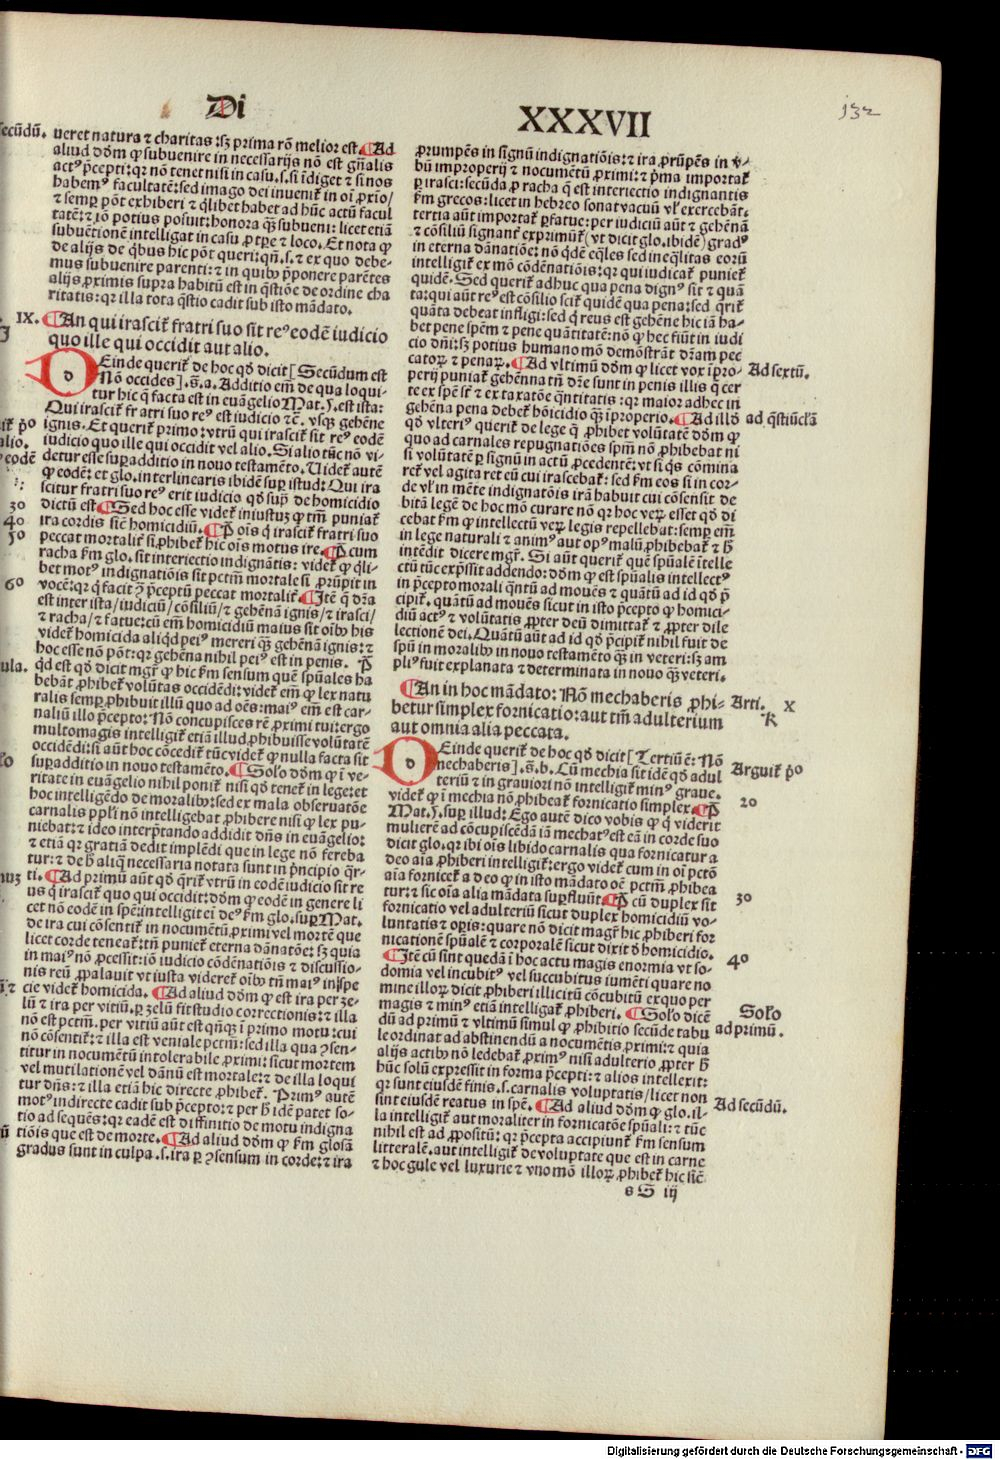 Di
XXXVII
132
ueret natura ⁊ charitas: sȝ prima rō melior est. ¶ Ad
aliud dōm ꝙ subuenire in necessarijs nō est gn̄alis
actꝰ p̄cepti: qꝛ nō tenet nisi in casu .s. si īdiget ⁊ si nos
habemꝰ facultatē: sed imago dei inuenit᷑ in oī ꝓxīo/
⁊ semꝑ pōt exhiberi ⁊ q̇libet habet ad hūc actū facul
tatē: ⁊ iō potius posuit: honora qȝ subueni: licet etiā
subuentionē intelligat in casu ꝓ tꝑe ⁊ loco. Et nota ꝙ
de alijs de q̇bus hic pōt queri: qn̄ .s. ⁊ ex quo debe-
mus subuenire parenti: ⁊ in quibꝰ p̄ponere parētes
alijs ꝓximis supra habitū est in q̄stiōe de ordine cha
ritatis: qꝛ illa tota q̄stio cadit sub isto mādato.
IX.
¶ An qui irascit᷑ fratri suo sit reꝰ eodē iudicio
quo ille qui occidit aut alio.
Deinde querit᷑ de hoc qđ dicit [Secūdum est
Nō occides] .§.a. Additio em̄ de qua loqui-
tur hic q̄ facta est in euāgelio Mat.5. est ista:
Qui irascit᷑ fratri suo reꝰ est iudicio ⁊c̄. vsqȝ gehēne
ignis. Et querit᷑ primo: vtrū qui irascit᷑ sit reꝰ eodē
iudicio quo ille qui occidit vel alio. Si alio tūc nō vi-
detur esse superadditio in nouo testamēto. Uidet᷑ autē
ꝙ eodē: et glo. interlinearis ibidē suꝑ istud: Qui ira
scitur fratri suo reꝰ erit iudicio qđ sup̄ de homicidio
dictū est ¶ Sed hoc esse videt᷑ iniustuȝ ꝙ tm̄ puniat᷑
ira cordis sic̄ homicidiū. ¶ P̄. ois q̇ irascit᷑ fratri suo
peccat mortalit᷑ si ꝓhibet᷑ hic ois motus ire. ¶ P̄. cum
racha ẜm glo. sit interiectio indignātis: videt᷑ ꝙ q̇li-
bet motꝰ indignatiōis sit pctm̄ mortale si ꝓrūpit in
vocē: qꝛ q̇ facit ꝯ p̄ceptū peccat mortalit᷑. ¶ Itē q̄ dr̄a
est inter ista/ iudiciū/ cōsiliū/ ⁊ gehēnā ignis/ ⁊ irasci/
⁊ racha/ ⁊ fatue: cū em̄ homicidiū maius sit oībꝰ his
videt᷑ homicida aliqd peiꝰ mereri qȝ gehēnā ignis: ⁊
hoc esse nō pōt: qꝛ gehēna nihil peiꝰ est in penis. P̄.
qđ est qđ dicit mgr̄ ꝙ hic ẜm sensum quē spūales ha
bebāt ꝓhibet᷑ volūtas occidēdi: videt᷑ em̄ ꝙ lex natu
ralis semꝑ ꝓhibuit illū quo ad oēs: maiꝰ em̄ est car-
naliū illo p̄cepto: Nō concupisces rē ꝓximi tui: ergo
multomagis intelligit᷑ etiā illud ꝓhibuisse volūtatē
occidēdi: si aūt hoc cōcedit᷑ tūc videt᷑ ꝙ nulla facta sit
superadditio in nouo testamēto. ¶ Solo̅ dōm ꝙ ī ve-
ritate in euāgelio nihil ponit᷑ nisi qđ tenet᷑ in lege: et
hoc intelligēdo de moralibꝰ: sed ex mala obseruatōe
carnalis ppli nō intelligebat ꝓhibere nisi ꝙ lex pu-
niebat: ⁊ ideo interp̄tando addidit dn̄s in euāgelio:
⁊ etiā qꝛ gratiā dedit implēdi que in lege nō fereba
tur: ⁊ de ħ aliq̄ necessaria notata sunt in p̄ncipio q̄r-
ti. ¶ Ad primū aūt qđ q̄rit᷑ vtrū in eodē iudicio sit re
us q̇ irascit᷑ quo qui occidit: dōm ꝙ eodē in genere li
cet nō eodē in spē: intelligit ei deꝰ ẜm glo. suꝑ Mat.
de ira cui cōsentit᷑ in nocumētū ꝓximi vel mortē que
licet corde teneat᷑: tn̄ puniet᷑ eterna dānatōe: sȝ quia
in maiꝰ nō ꝓcessit: iō iudicio cōdēnatiōis ⁊ discussio-
nis reū ꝓpalauit vt iusta videret᷑ oībꝰ tn̄ mai īspe
cie videt᷑ homicida. ¶ Ad aliud dōm ꝙ est ira per ȝe-
lū ⁊ ira per vitiū. ꝑ ȝelū fit studio correctionis: ⁊ illa
nō est pctm̄. per vitiū aūt est qn̄qȝ ī primo motu: cui
nō cōsentit᷑: ⁊ illa est veniale pctm̄: sed illa qua ꝯsen-
titur in nocumētū intolerabile ꝓximi: sicut mortem
vel mutilationē vel dānū est mortale: ⁊ de illa loqui
tur dn̄s: ⁊ illa etiā hic directe ꝓhibet᷑. Primꝰ autē
motꝰ indirecte cadit sub p̄cepto: ⁊ per ħ idē patet so-
tio ad sequēs: qꝛ eadē est diffinitio de motu indigna
tiōis que est de morte. ¶ Ad aliud dōm ꝙ ẜm glosā
gradus sunt in culpa .s. ira ꝑ ꝯsensum in corde: ⁊ ira
ꝓrumpēs in signū indignatiōis: ⁊ ira ꝓrūpēs in v̄-
bū improperij ⁊ nocumētū ꝓximi: ⁊ p̄ma importat᷑
ꝑ irasci: secūda ꝑ racha q̄ est interiectio indignantis
ẜm grecos: licet in hebreo sonat vacuū vl̓ exercebāt.
tertia aūt importat᷑ ꝑ fatue: per iudiciū aūt ⁊ gehēnā
⁊ cōsiliū signant᷑ exprimūt᷑ (vt dicit glo. ibidē) gradꝰ
in eterna dānatiōe: nō q̇dē eq̄les sed ineq̄litas eorū
intelligit᷑ ex mō cōdēnatiōis: qꝛ qui iudicat᷑ puniet᷑
quidē. Sed querit᷑ adhuc qua pena dignꝰ sit ⁊ quā
ta: qui aūt reꝰ est cōsilio scit᷑ quidē qua pena: sed q̄rit᷑
quāta debeat infligi: sed q̇ reus est gehēne hic iā ha-
bet pene spēm ⁊ pene quātitatē: nō ꝙ hec fiūt in iudi
cio dn̄i: sȝ potius humano mō demōstrāt dānam pec
catoꝝ ⁊ penaꝝ. ¶ Ad vltimū dōm ꝙ licet vox īpro-
perij puniat᷑ gehēnna tn̄ dr̄e sunt in penis illis q̄ cer
te ex spē sit᷑ ⁊ ex taxatōe q̄ntitatis: qꝛ maior adhec in
gehēna pena debet᷑ hōicidio qȝ īproperio. ¶ Ad illđ
qđ vlteriꝰ querit᷑ de lege q̄ ꝓhibet volūtatē dōm ꝙ
quo ad carnales repugnatiōes spm̄ nō ꝓhibebat ni
si volūtatē ꝑ signū in actū ꝓcedentē: vt si q̇s cōmina
ret᷑ vel agitaret eū cui irascebat᷑: sed ẜm eos si in cor-
de vl̓ in mēte indignatōis irā habuit cui cōsensit de
bitā legē de hoc mō curare nō qꝛ hoc veꝝ esset qđ di
cebat ẜm ꝙ intellectū veꝝ legis repellebat: semꝑ em̄
in lege naturali ⁊ animꝰ aut opꝰ malū ꝓhibebat᷑ ⁊ ħ
intēdit dicere mgr̄. Si aūt querit᷑ quē spūalē ītelle
ctū tūc exp̄ssit addendo: dōm ꝙ est spūalis intellectꝰ
in p̄cepto morali q̄ntū ad mouēs ⁊ quātū ad id qđ p̄
cipit᷑. quātū ad mouēs sicut in isto p̄cepto ꝙ homici-
diū actꝰ ⁊ volūtatis ꝓpter deū dimittat᷑ ⁊ ꝓpter dile
lectionē dei. Quātū aūt ad id qđ p̄cipit᷑ nihil fuit de
spū in moralibꝰ in nouo testamēto qȝ in veteri: sȝ am
pliꝰ fuit explanata ⁊ determinata in nouo qȝ veteri.
¶ An in hoc mādato: Nō mechaberis ꝓhi-
betur simplex fornicatio: aut tm̄ adulterium
aut omnia alia peccata.
Deinde querit᷑ de hoc qđ dicit [Tertiū ē: Nō
mechaberis] .§.b. Cū mechia sit idē qđ adul
teriū ⁊ in grauiori nō intelligit᷑ minꝰ graue.
videt᷑ ꝙ ī mechia nō ꝓhibeat᷑ fornicatio simplex. ¶ P̄.
Mat.5. suꝑ illud: Ego autē dico vobis ꝙ q̇ viderit
mulierē ad cōcupiscēdā iā mechatꝰ est eā in corde suo
dicit glo. qꝛ ibi ois libido carnalis qua fornicatur a
deo aīa ꝓhiberi intelligit᷑: ergo videt᷑ cum in oī pctō
aīa fornicet᷑ a deo ꝙ in isto mādato oē pctm̄ ꝓhibea
tur: ⁊ sic oīa alia mādata supfluūt. ¶ P̄. cū duplex sit
fornicatio vel adulteriū sicut duplex homicidiū vo-
luntatis ⁊ opis: quare nō dicit magr̄ hic ꝓhiberi for
nicationē spūalē ⁊ corporalē sicut dixit đ homicidio.
¶ Itē cū sint quedā ī hoc actu magis enormia vt so-
domia vel incubitꝰ vel succubitus iumēti quare no
mine illoꝝ dicit ꝓhiberi illicitū cōcubitū ex quo per
magis ⁊ minꝰ etiā intelligat᷑ ꝓhiberi. ¶ Solo̅ dicē
dū ad primū ⁊ vltimū simul ꝙ ꝓhibitio secūde tabu
le ordinat ad abstinendū a nocumētis ꝓximi: ⁊ quia
alijs actibꝰ nō ledebat᷑ ꝓximꝰ nisi adulterio ꝓpter ħ
hūc solū expressit in forma p̄cepti: ⁊ alios intellexit:
qꝛ sunt eiusdē finis .s. carnalis voluptatis/ licet non
sint eiusdē reatus in spē. ¶ Ad aliud dōm ꝙ glo. il-
la intelligit᷑ aut moraliter in fornicatōe spūali: ⁊ tūc
nihil est ad ꝓpositū: qꝛ p̄cepta accipiunt᷑ ẜm sensum
litteralē. aut intelligit᷑ de voluptate que est in carne
⁊ hoc gule vel luxurie ⁊ vno mō illoꝝ ꝓhibet᷑ hic sic̄
s S iij
Ad sextū.
ad q̄stiūclā
Arti. X
R
Arguit᷑ p̄o
20
30
40
Solo̅
ad primū.
Ad secūdū.
secūdū.
30
40
50
60